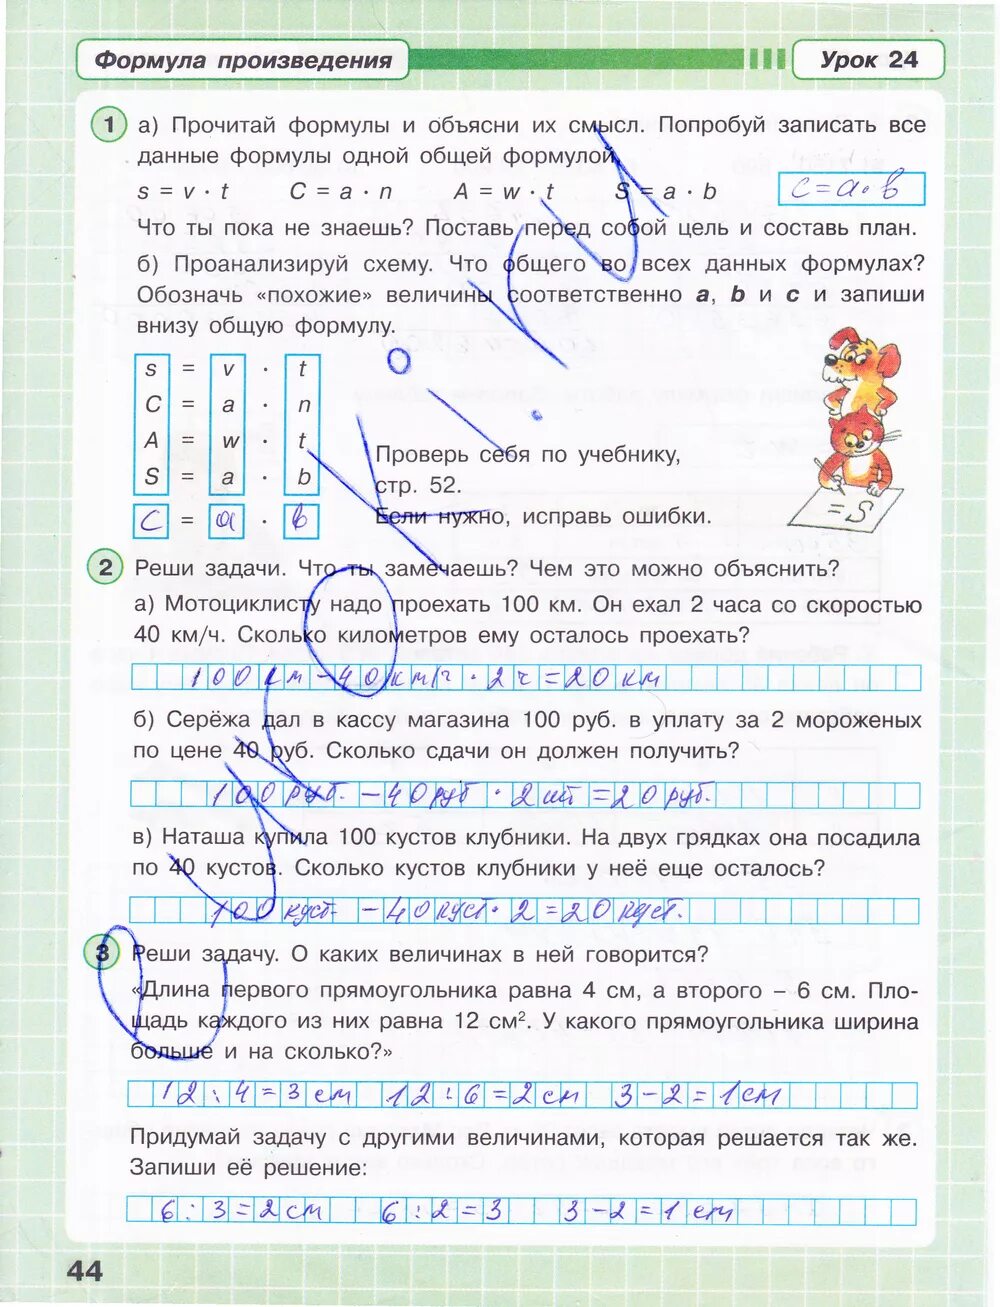 Формула произведения
Урок 24
1 а) Прочитай формулы и объясни их смысл. Попробуй записать все
данные формулы одной общей формулой.
s = v · t C = a · n A = w · t S = a · b c=a·b
Что ты пока не знаешь? Поставь перед собой цель и составь план.
б) Проанализируй схему. Что общего во всех данных формулах?
Обозначь «похожие» величины соответственно a, b и c и запиши
внизу общую формулу.
s = v · t
C = a · n
A = w · t
S = a · b
c = a · b
Проверь себя по учебнику,
стр. 52.
Если нужно, исправь ошибки.
= S
2 Реши задачи. Что ты замечаешь? Чем это можно объяснить?
а) Мотоциклисту надо проехать 100 км. Он ехал 2 часа со скоростью
40 км/ч. Сколько километров ему осталось проехать?
100 км - 40 км/ч · 2 ч = 20 км
б) Серёжа дал в кассу магазина 100 руб. в уплату за 2 мороженых
по цене 40 руб. Сколько сдачи он должен получить?
100 руб. - 40 руб · 2 шт = 20 руб.
в) Наташа купила 100 кустов клубники. На двух грядках она посадила
по 40 кустов. Сколько кустов клубники у неё еще осталось?
100 куст - 40 куст · 2 = 20 куст.
3 Реши задачу. О каких величинах в ней говорится?
«Длина первого прямоугольника равна 4 см, а второго – 6 см. Пло-
щадь каждого из них равна 12 см². У какого прямоугольника ширина
больше и на сколько?»
12 : 4 = 3 см 12 : 6 = 2 см 3 - 2 = 1 см
Придумай задачу с другими величинами, которая решается так же.
Запиши её решение:
6 : 3 = 2 см 6 : 2 = 3 3 - 2 = 1 см
44